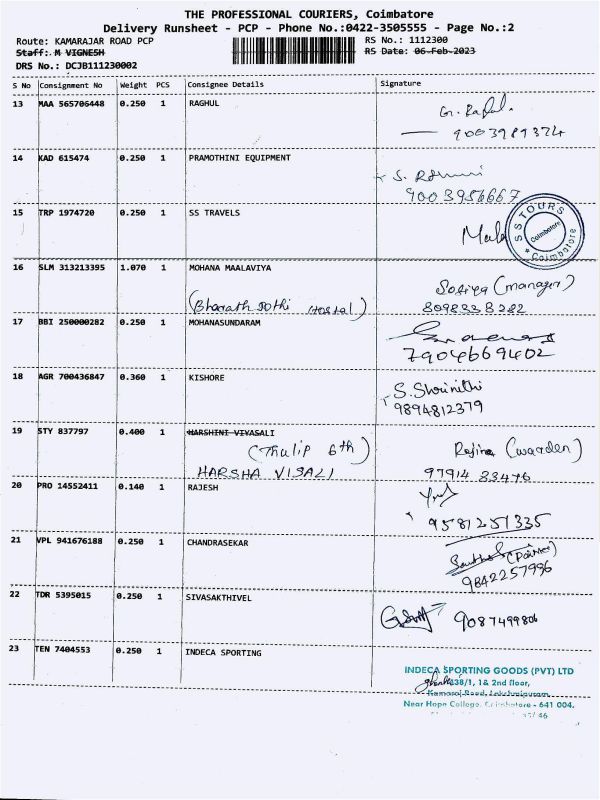 THE PROFESSIONAL COURIERS, Coimbatore
Delivery Runsheet - PCP - Phone No.:0422-3505555 - Page No.:2
Route: KAMARAJAR ROAD PCP RS No.: 1112300
Staff: M VIGNESH RS Date: 06-Feb-2023
DRS No.: DCJB111230002
S No Consignment No Weight PCS Consignee Details Signature
13 MAA 565706448 0.250 1 RAGHUL
9003989374
14 KAD 615474 0.250 1 PRAMOTHINI EQUIPMENT
9003956667
15 TRP 1974720 0.250 1 SS TRAVELS
Mala S S TOURS Coimbatore * Coimbatore
16 SLM 313213395 1.070 1 MOHANA MAALAVIYA
Sofiya (manager)
(Bharath Jothi Hostal) 8098338282
17 BBI 250000282 0.250 1 MOHANASUNDARAM
7904669402
18 AGR 700436847 0.360 1 KISHORE
S. Shrinithi
9894812379
19 STY 837797 0.400 1 HARSHINI VIYASALI
(Thulip 6th) Rajina (waarden)
HARSHA VISALI 97914 33476
20 PRO 14552411 0.140 1 RAJESH
9581251335
21 VPL 941676188 0.250 1 CHANDRASEKAR
9842257996
22 TDR 5395015 0.250 1 SIVASAKTHIVEL
9087499806
23 TEN 7404553 0.250 1 INDECA SPORTING
INDECA SPORTING GOODS (PVT) LTD
338/1, 1& 2nd floor,
Kamaraj Road, Lakshmipuram,
Near Hope College, Coimbatore - 641 004.